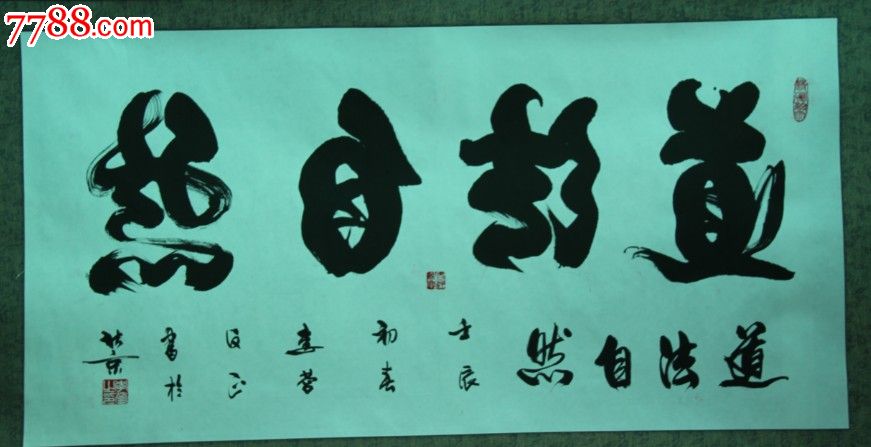 7788.com
道法自然
道法自然
壬辰
初春
建营
汉正
書於
北京